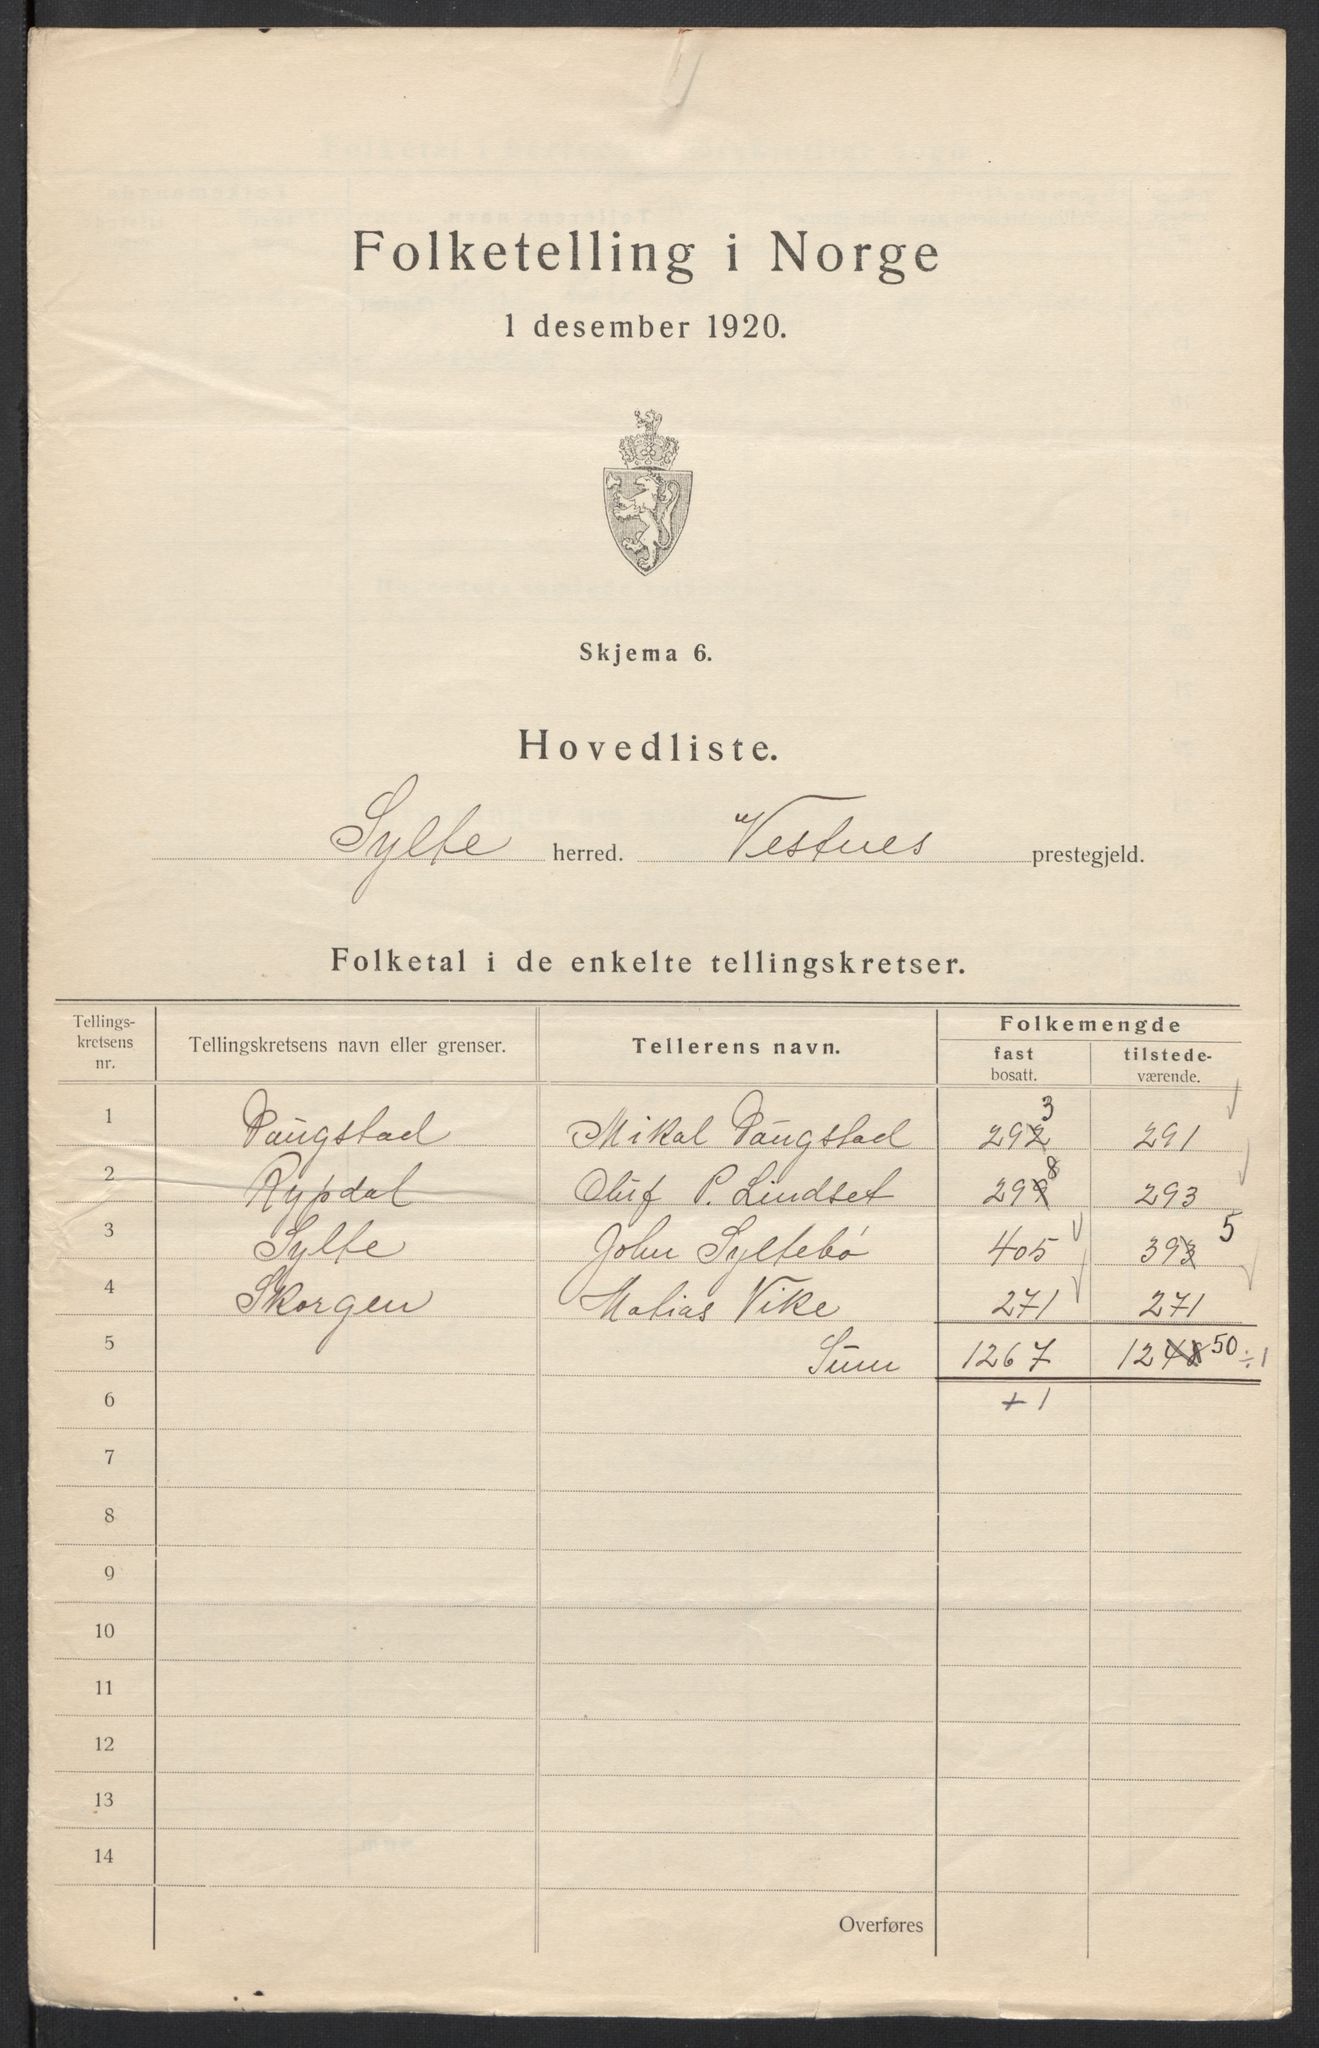 Folketelling i Norge
1 desember 1920.
Skjema 6.
Hovedliste.
Sylte herred. Vestnes prestegjeld.
Folketal i de enkelte tellingskretser.
Tellings-kretsens nr. Tellingskretsens navn eller grenser. Tellerens navn. Folkemengde
fast bosatt. tilstede-værende.
3
1 Daugstad Mikal Daugstad 292 291
8
2 Rypdal Oluf P. Lindset 299 293
5
3 Sylte John Syltebø 405 393
4 Skorgen Matias Vike 271 271
5 Sum 1267 1248 50 ÷1
6 +1
7
8
9
10
11
12
13
14
Overføres